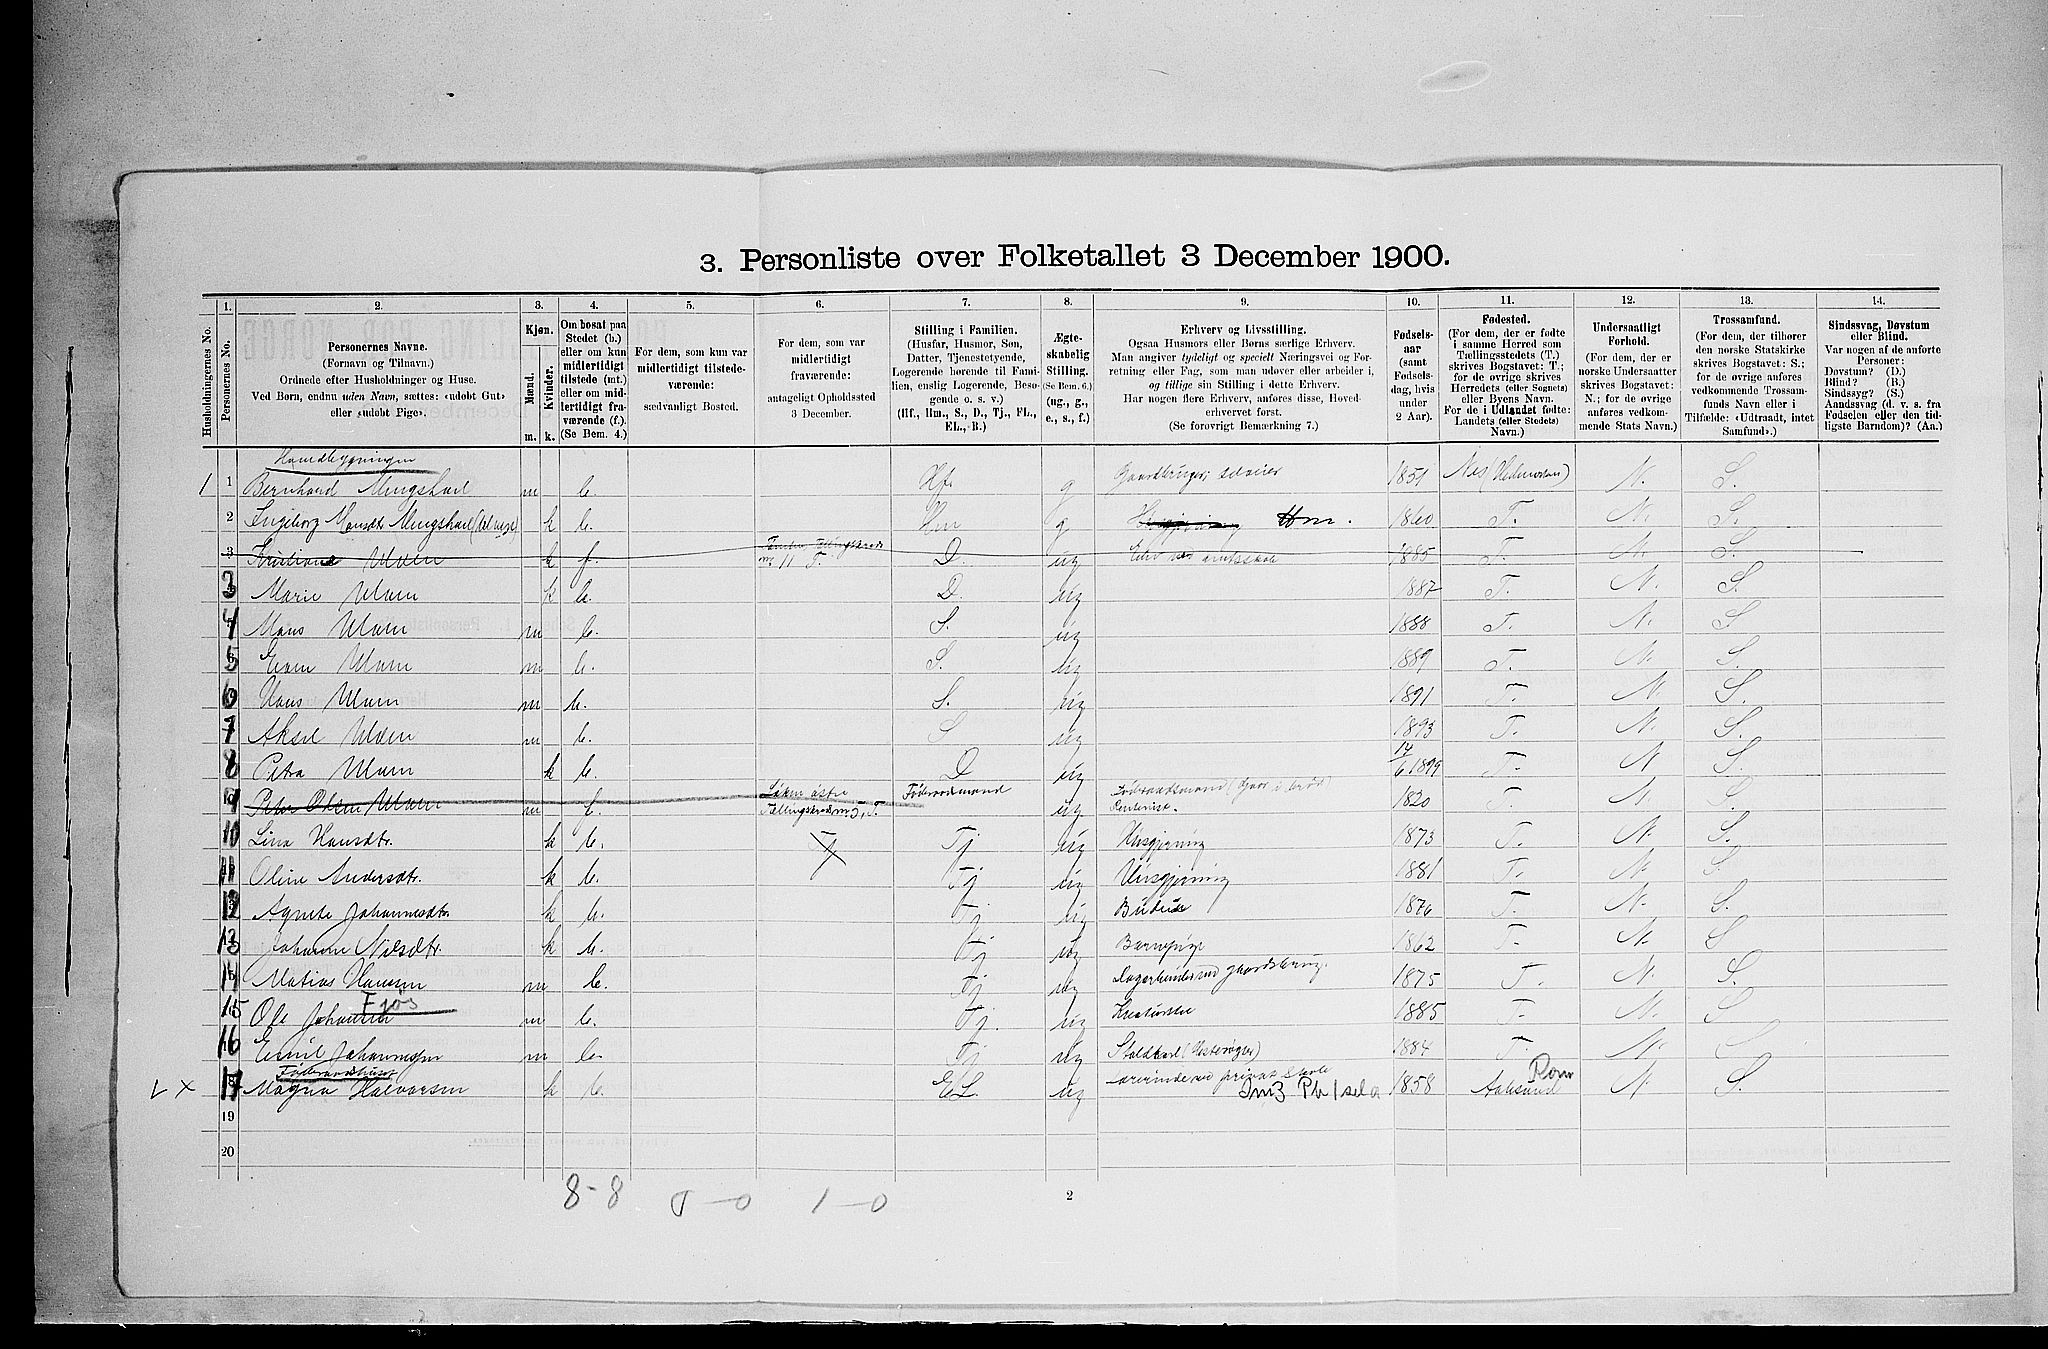 3. Personliste over Folketallet 3 December 1900.
1. 2. 3. 4. 5. 6. 7. 8. 9. 10. 11. 12. 13. 14.
Husholdningernes No.
Personernes No.
Personernes Navne.
(Fornavn og Tilnavn.)
Ordnede efter Husholdninger og Huse.
Ved Børn, endnu uden Navn, sættes: «udøbt Gut»
eller «udøbt Pige».
Kjøn.
Mænd.
Kvinder.
m. k.
Om bosat paa
Stedet (b.)
eller om kun
midlertidigt
tilstede (mt.)
eller om mid-
lertidigt fra-
værende (f.).
(Se Bem. 4.)
For dem, som kun var
midlertidigt tilstede-
værende:
sædvanligt Bosted.
For dem, som var
midlertidigt
fraværende:
antageligt Opholdssted
3 December.
Stilling i Familien.
(Husfar, Husmor, Søn,
Datter, Tjenestetyende,
Logerende hørende til Fami-
lien, enslig Logerende, Besø-
gende o. s. v.)
(Hf., Hm., S., D., Tj., FL.,
EL., B.)
Ægte-
skabelig
Stilling.
(Se Bem. 6.)
(ug., g.,
e., s., f.)
Erhverv og Livsstilling.
Ogsaa Husmors eller Børns særlige Erhverv.
Man angiver tydeligt og specielt Næringsvei og For-
retning eller Fag, som man udøver eller arbeider i,
og tillige sin Stilling i dette Erhverv.
Har nogen flere Erhverv, anføres disse, Hoved-
erhvervet først.
(Se forøvrigt Bemærkning 7.)
Fødsels-
aar
(samt
Fødsels-
dag, hvis
under
2 Aar).
Fødested.
(For dem, der er fødte
i samme Herred som
Tællingsstedets (T.)
skrives Bogstavet: T.;
for de øvrige skrives
Herredets (eller Sognets)
eller Byens Navn.
For de i Udlandet fødte:
Landets (eller Stedets)
Navn.)
Undersaatligt
Forhold.
(For dem, der er
norske Undersaatter
skrives Bogstavet:
N.; for de øvrige
anføres vedkom-
mende Stats Navn.)
Trossamfund.
(For dem, der tilhører
den norske Statskirke
skrives Bogstavet: S.;
for de øvrige anføres
vedkommende Trossam-
funds Navn eller i
Tilfælde: «Udtraadt, intet
Samfund».)
Sindssvag, Døvstum
eller Blind.
Var nogen af de anførte
Personer:
Døvstum? (D.)
Blind? (B.)
Sindssyg? (S.)
Aandssvag (d. v. s. fra
Fødselen eller den tid-
ligste Barndom)? (Aa.)
Hovedbygningen
1 1 Bernhard m b. Hf. g Gaardbruger, selveier 1851 Nes (Hedemarken) N. S.
2 Ingeborg k b. Hm g Hm. 1860 T. N. S.
3 k f. 11 T. D. ug 1885 T. N. S.
3 Marie k b. D. ug 1887 T. N. S.
4 m b. S. ug 1888 T. N. S.
5 m b. S. ug 1889 T. N. S.
6 Hans m b. S. ug 1891 T. N. S.
7 Aksel m b. S ug 1893 T. N S.
8 Petra k b. D ug 1899 T. N S.
9 m f. Tællingskreds no 5, T. Føderaadsmand ug. Føderaadsmand 1820 T N S.
10 Lina Hansdtr. k b. Tj Tj ug Husgjerning 1873 T. N S.
11 Oline Andersdtr. k b. Tj ug Husgjerning 1881 T. N S.
12 Agnete Johannesdtr k b. Tj ug Budeie 1876 T. N. S.
13 Johanne Nilsdtr. k b. Tj ug Barnepige 1862 T. N. S
14 Matias Hansen m b. Tj ug gaardsbrug. 1875 T. N. S.
Fjøs
15 Ole Johansen m b. Tj. ug 1885 T. N. S
16 Emil Johannesen m b. Tj ug Staldkarl 1884 T. N.
Føderaadshuset
17 Magna Halvorsen k b. EL. ug Lærerinde ved privat skole 1858 N S.
19
20
8-8 0-0 1-0
2